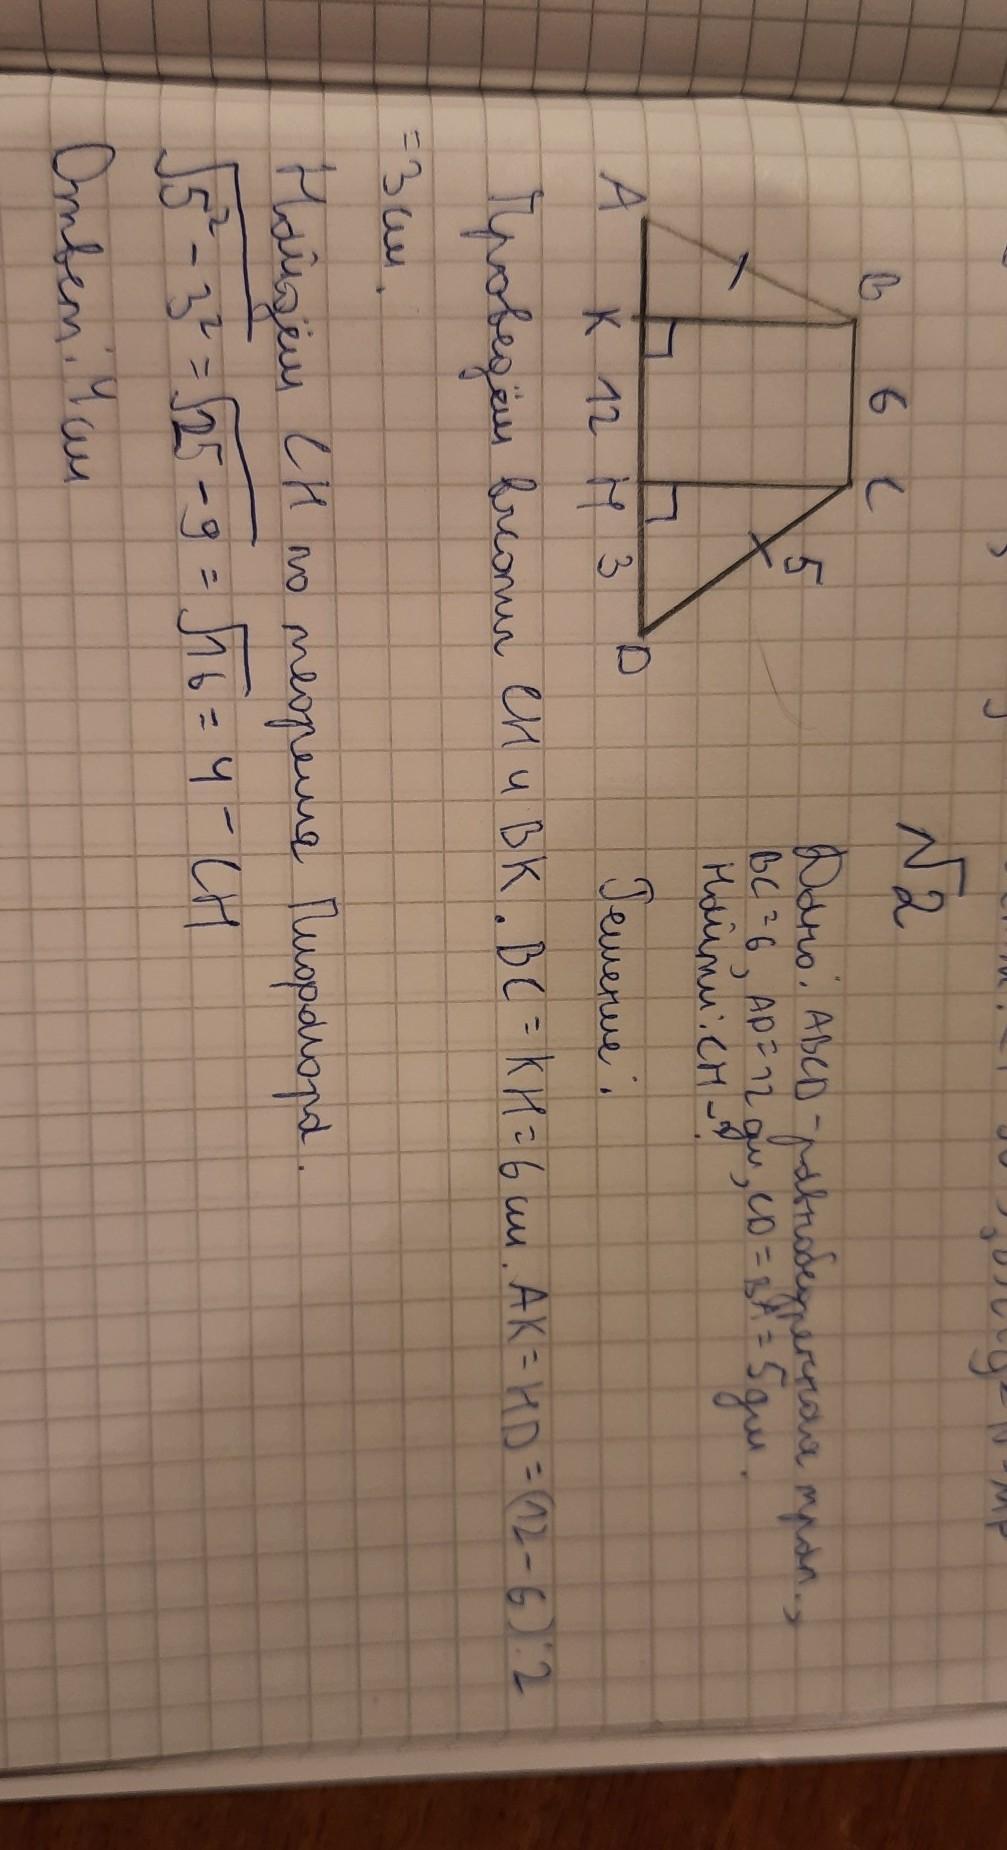 √2
B 6 C
5
A K 12 H 3 D
Дано: ABCD - равнобедренная трап.,
BC = 6, AD = 12 дм, CD = BA = 5 дм.
Найти: CH - ?
Решение:
Проведём высоты CH и BK. BC = KH = 6 см. AK = HD = (12 - 6) : 2
= 3 см.
Найдём CH по теореме Пифагора.
√5² - 3² = √25 - 9 = √16 = 4 - CH
Ответ: 4 см